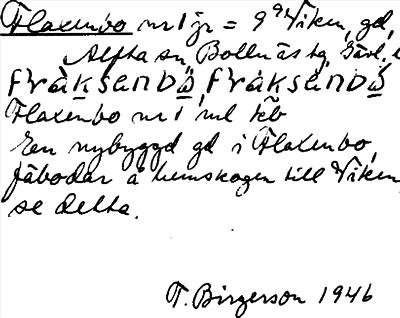 Flaxenbo nr 1 jr = 9 Viken, gd,
Alfta sn, Bollnäs tg, Gävl. l
fràksenbò, fràksenbò
Flaxenbo nr 1 ml kb
En nybyggd gd i Flaxenbo,
fäbodar å hemskogen till Viken,
se detta.
T. Birgerson 1946